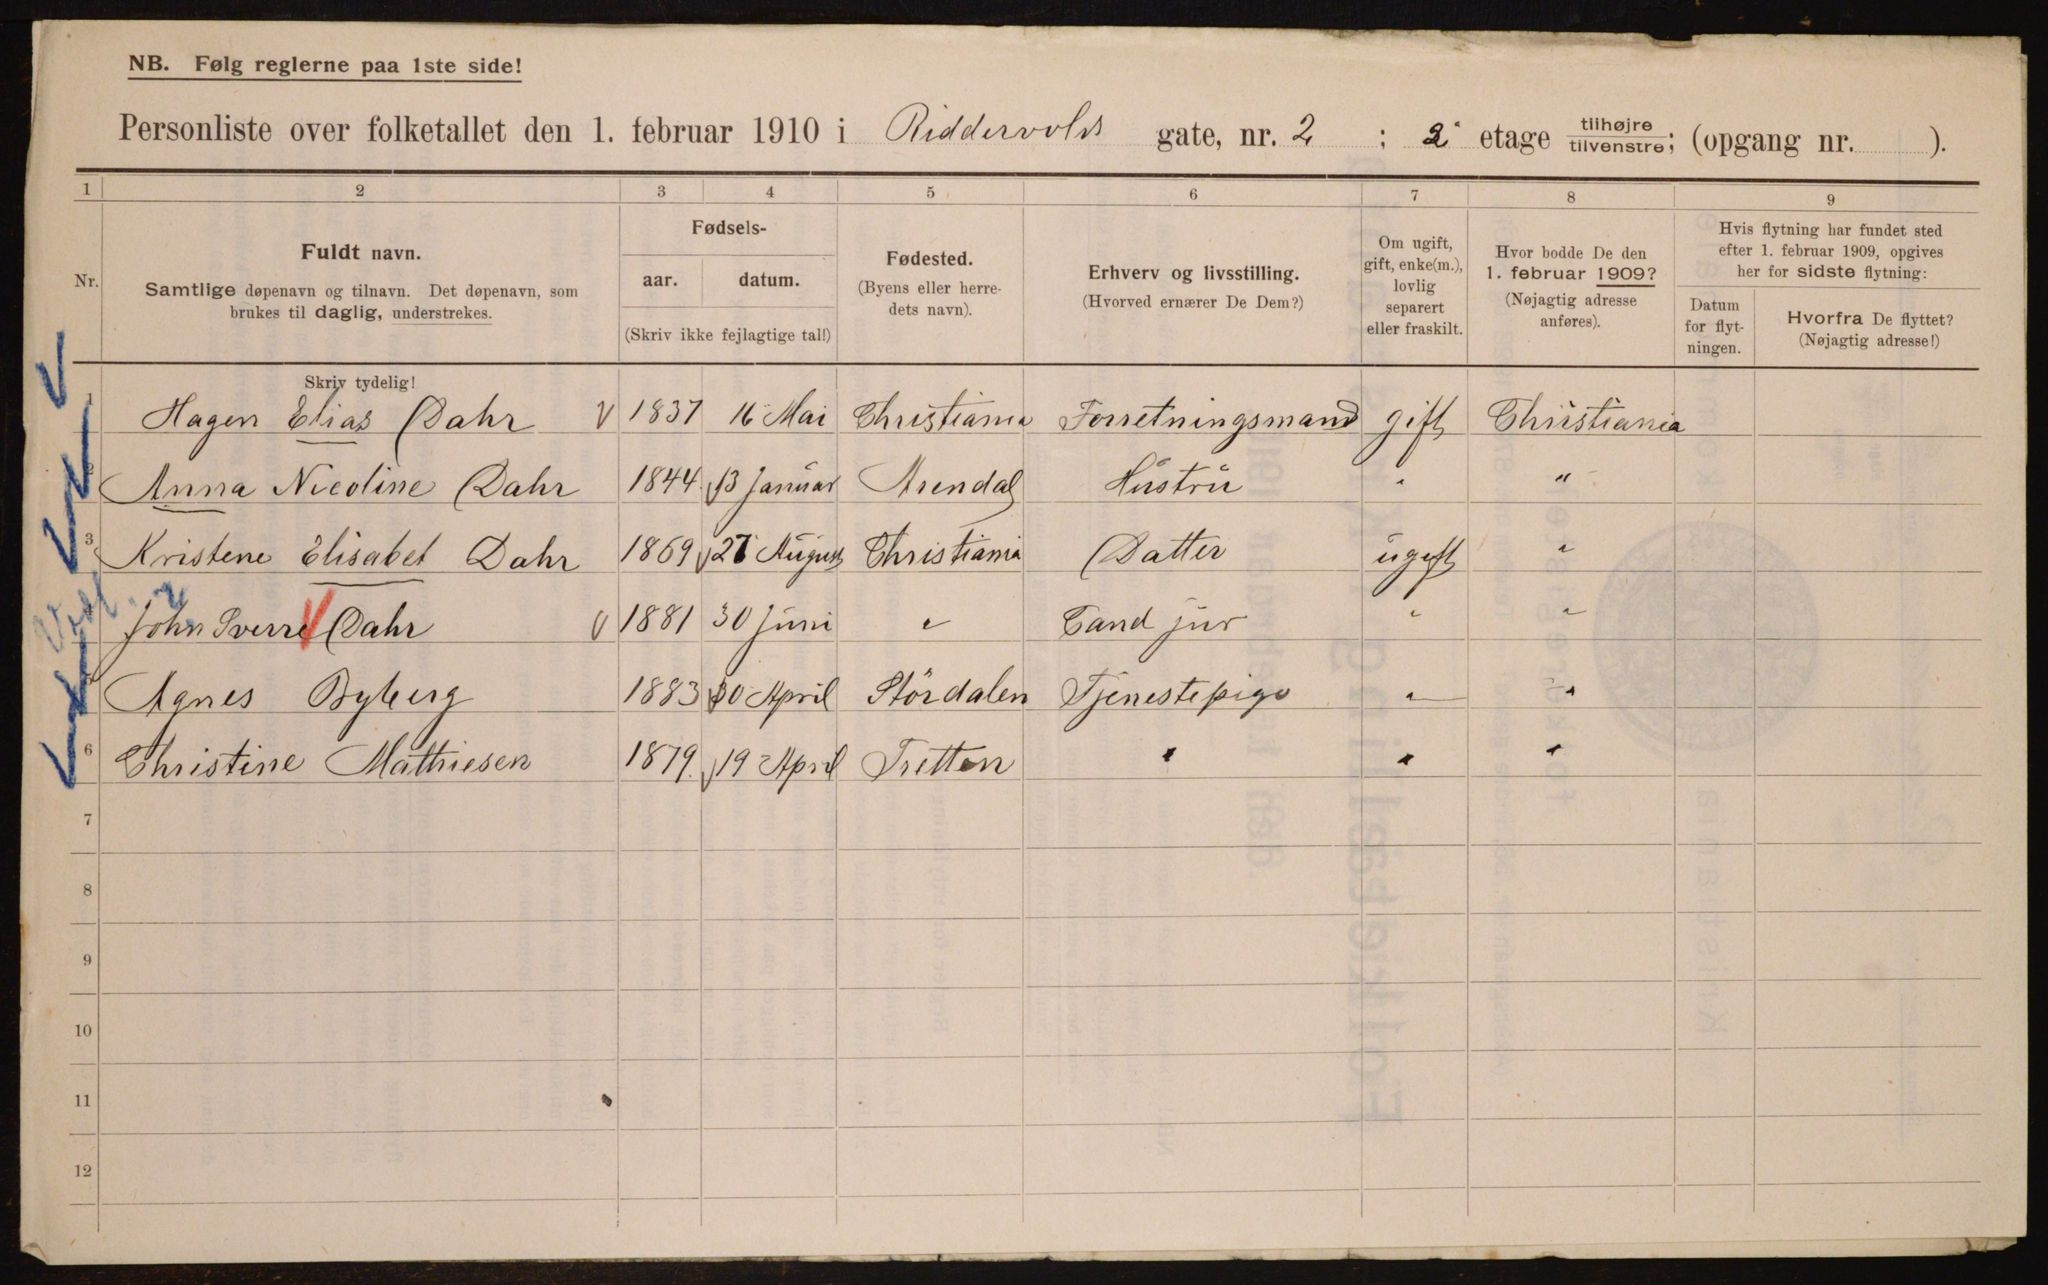 NB. Følg reglerne paa 1ste side!
Personliste over folketallet den 1. februar 1910 i Riddervolds gate, nr. 2 ; 2 etage tilhøjre tilvenstre; (opgang nr. ).
1 2 3 4 5 6 7 8 9
Nr.
Fuldt navn.
Samtlige døpenavn og tilnavn. Det døpenavn, som
brukes til daglig, understrekes.
Fødsels-
aar. datum.
(Skriv ikke fejlagtige tal!)
Fødested.
(Byens eller herre-
dets navn).
Erhverv og livsstilling.
(Hvorved ernærer De Dem?)
Om ugift,
gift, enke(m.),
lovlig
separert
eller fraskilt.
Hvor bodde De den
1. februar 1909?
(Nøjagtig adresse
anføres).
Hvis flytning har fundet sted
efter 1. februar 1909, opgives
her for sidste flytning:
Datum
for flyt-
ningen.
Hvorfra De flyttet?
(Nøjagtig adresse!)
Skriv tydelig!
Hagen Elias Dahr 1837 16 Mai Christiania Forretningsmand gift Christiania
Anna Nicoline Dahr 1844 13 Januar Arendal Hustru " "
3 Kristene Elisabet Dahr 1869 27 August Christiania Datter ugift "
John Sverre Dahr 1881 30 Juni " Cand jur " "
Agnes Byberg 1883 30 April Stördalen Tjenestepige " "
6 Christine Mathiesen 1879 19 April Tretten " " "
7
8
9
10
11
12